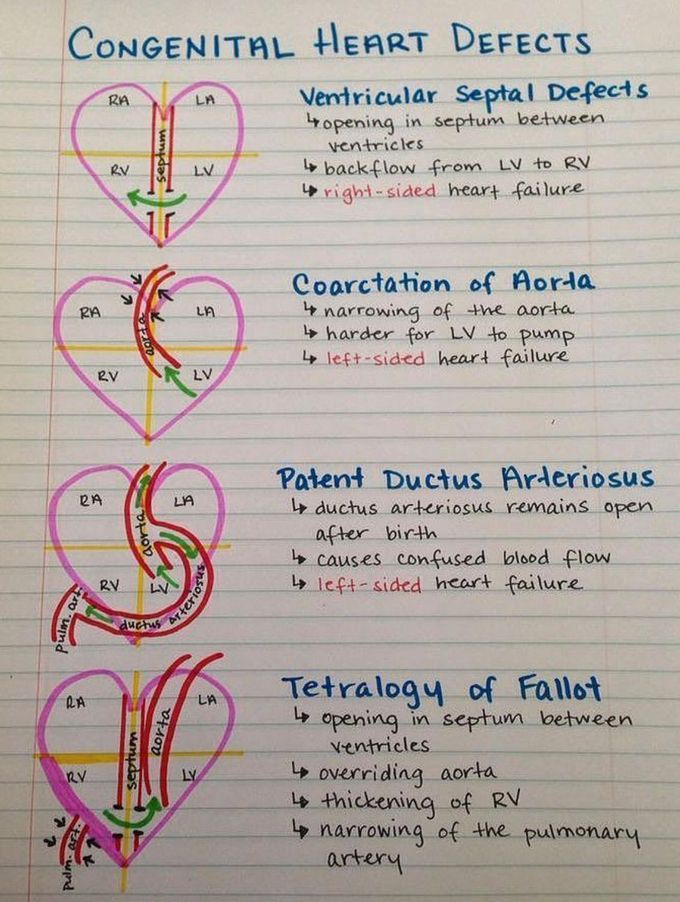 CONGENITAL HEART DEFECTS
RA
LA
septum
RV
LV
Ventricular Septal Defects
↳ opening in septum between
ventricles
↳ backflow from LV to RV
↳ right-sided heart failure
RA
LA
aorta
RV
LV
Coarctation of Aorta
↳ narrowing of the aorta
↳ harder for LV to pump
↳ left-sided heart failure
RA
LA
aorta
RV
LV
Pulm. art.
ductus arteriosus
Patent Ductus Arteriosus
↳ ductus arteriosus remains open
after birth
↳ causes confused blood flow
↳ left-sided heart failure
RA
LA
septum
aorta
RV
LV
Pulm. art.
Tetralogy of Fallot
↳ opening in septum between
ventricles
↳ overriding aorta
↳ thickening of RV
↳ narrowing of the pulmonary
artery